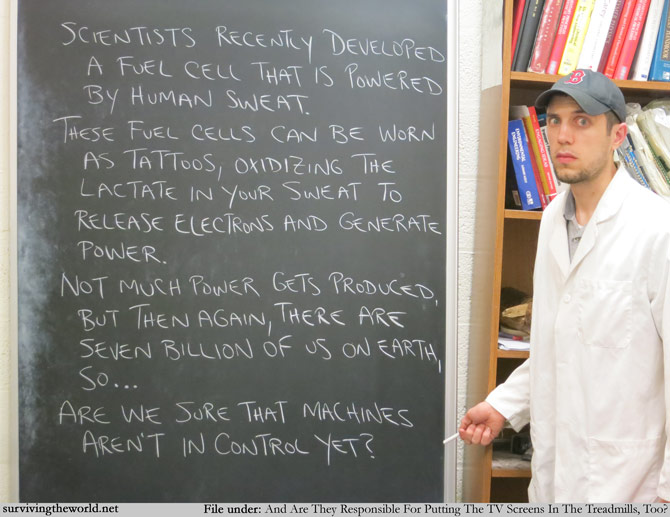 SCIENTISTS RECENTLY DEVELOPED
A FUEL CELL THAT IS POWERED
BY HUMAN SWEAT.
THESE FUEL CELLS CAN BE WORN
AS TATTOOS, OXIDIZING THE
LACTATE IN YOUR SWEAT TO
RELEASE ELECTRONS AND GENERATE
POWER.
NOT MUCH POWER GETS PRODUCED,
BUT THEN AGAIN, THERE ARE
SEVEN BILLION OF US ON EARTH,
SO...
ARE WE SURE THAT MACHINES
AREN'T IN CONTROL YET?
B
ENVIRONMENTAL
ENGINEERING
survivingtheworld.net
File under: And Are They Responsible For Putting The TV Screens In The Treadmills, Too?